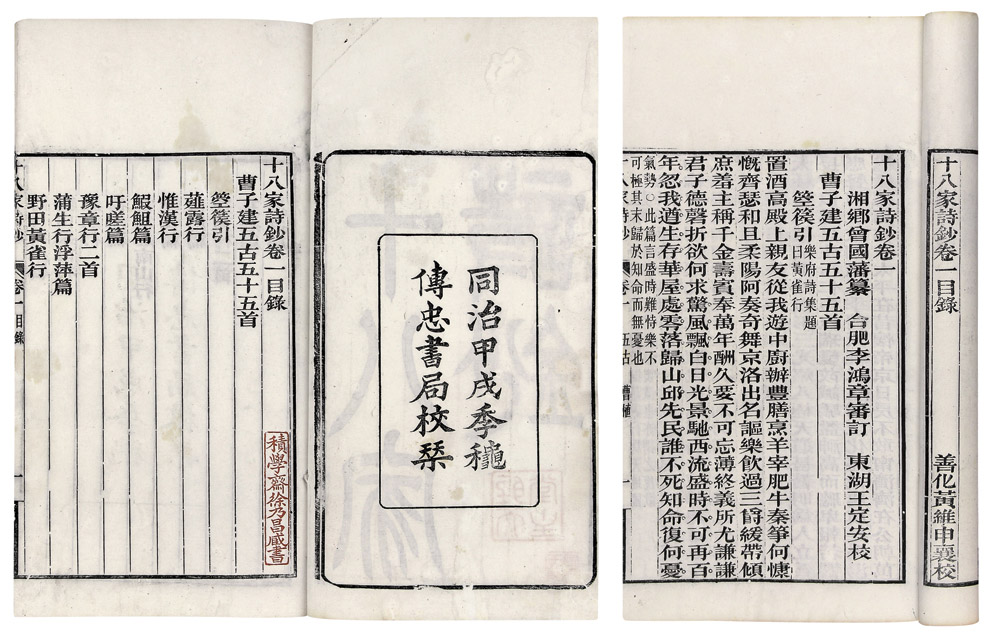 同治甲戌季龝
傳忠書局校栞
十八家詩鈔卷一目錄
曹子建五古五十五首
箜篌引
薤露行
惟漢行
鰕䱇篇
吁嗟篇
豫章行二首
蒲生行浮萍篇
野田黃雀行
十八家詩鈔 卷一目錄 一
積學齋徐乃昌藏書
十八家詩鈔卷一目錄 善化黃維申襄校
十八家詩鈔卷一
湘鄉曾國藩纂 合肥李鴻章審訂 東湖王定安校
曹子建五古五十五首
箜篌引 樂府詩集題
曰黃雀行
置酒高殿上親友從我遊中廚辦豐膳烹羊宰肥牛秦箏何慷
慨齊瑟和且柔陽阿奏奇舞京洛出名謳樂飲過三爵緩帶傾
庶羞主稱千金壽賓奉萬年酬久要不可忘薄終義所尤謙謙
君子德磬折欲何求驚風飄白日光景馳西流盛時不可再百
年忽我遒生存華屋處零落歸山邱先民誰不死知命復何憂
氣勢○此篇言盛時難恃樂不
可極其末歸於知命而無憂也
十八家詩鈔 卷一 五古 曹植 一